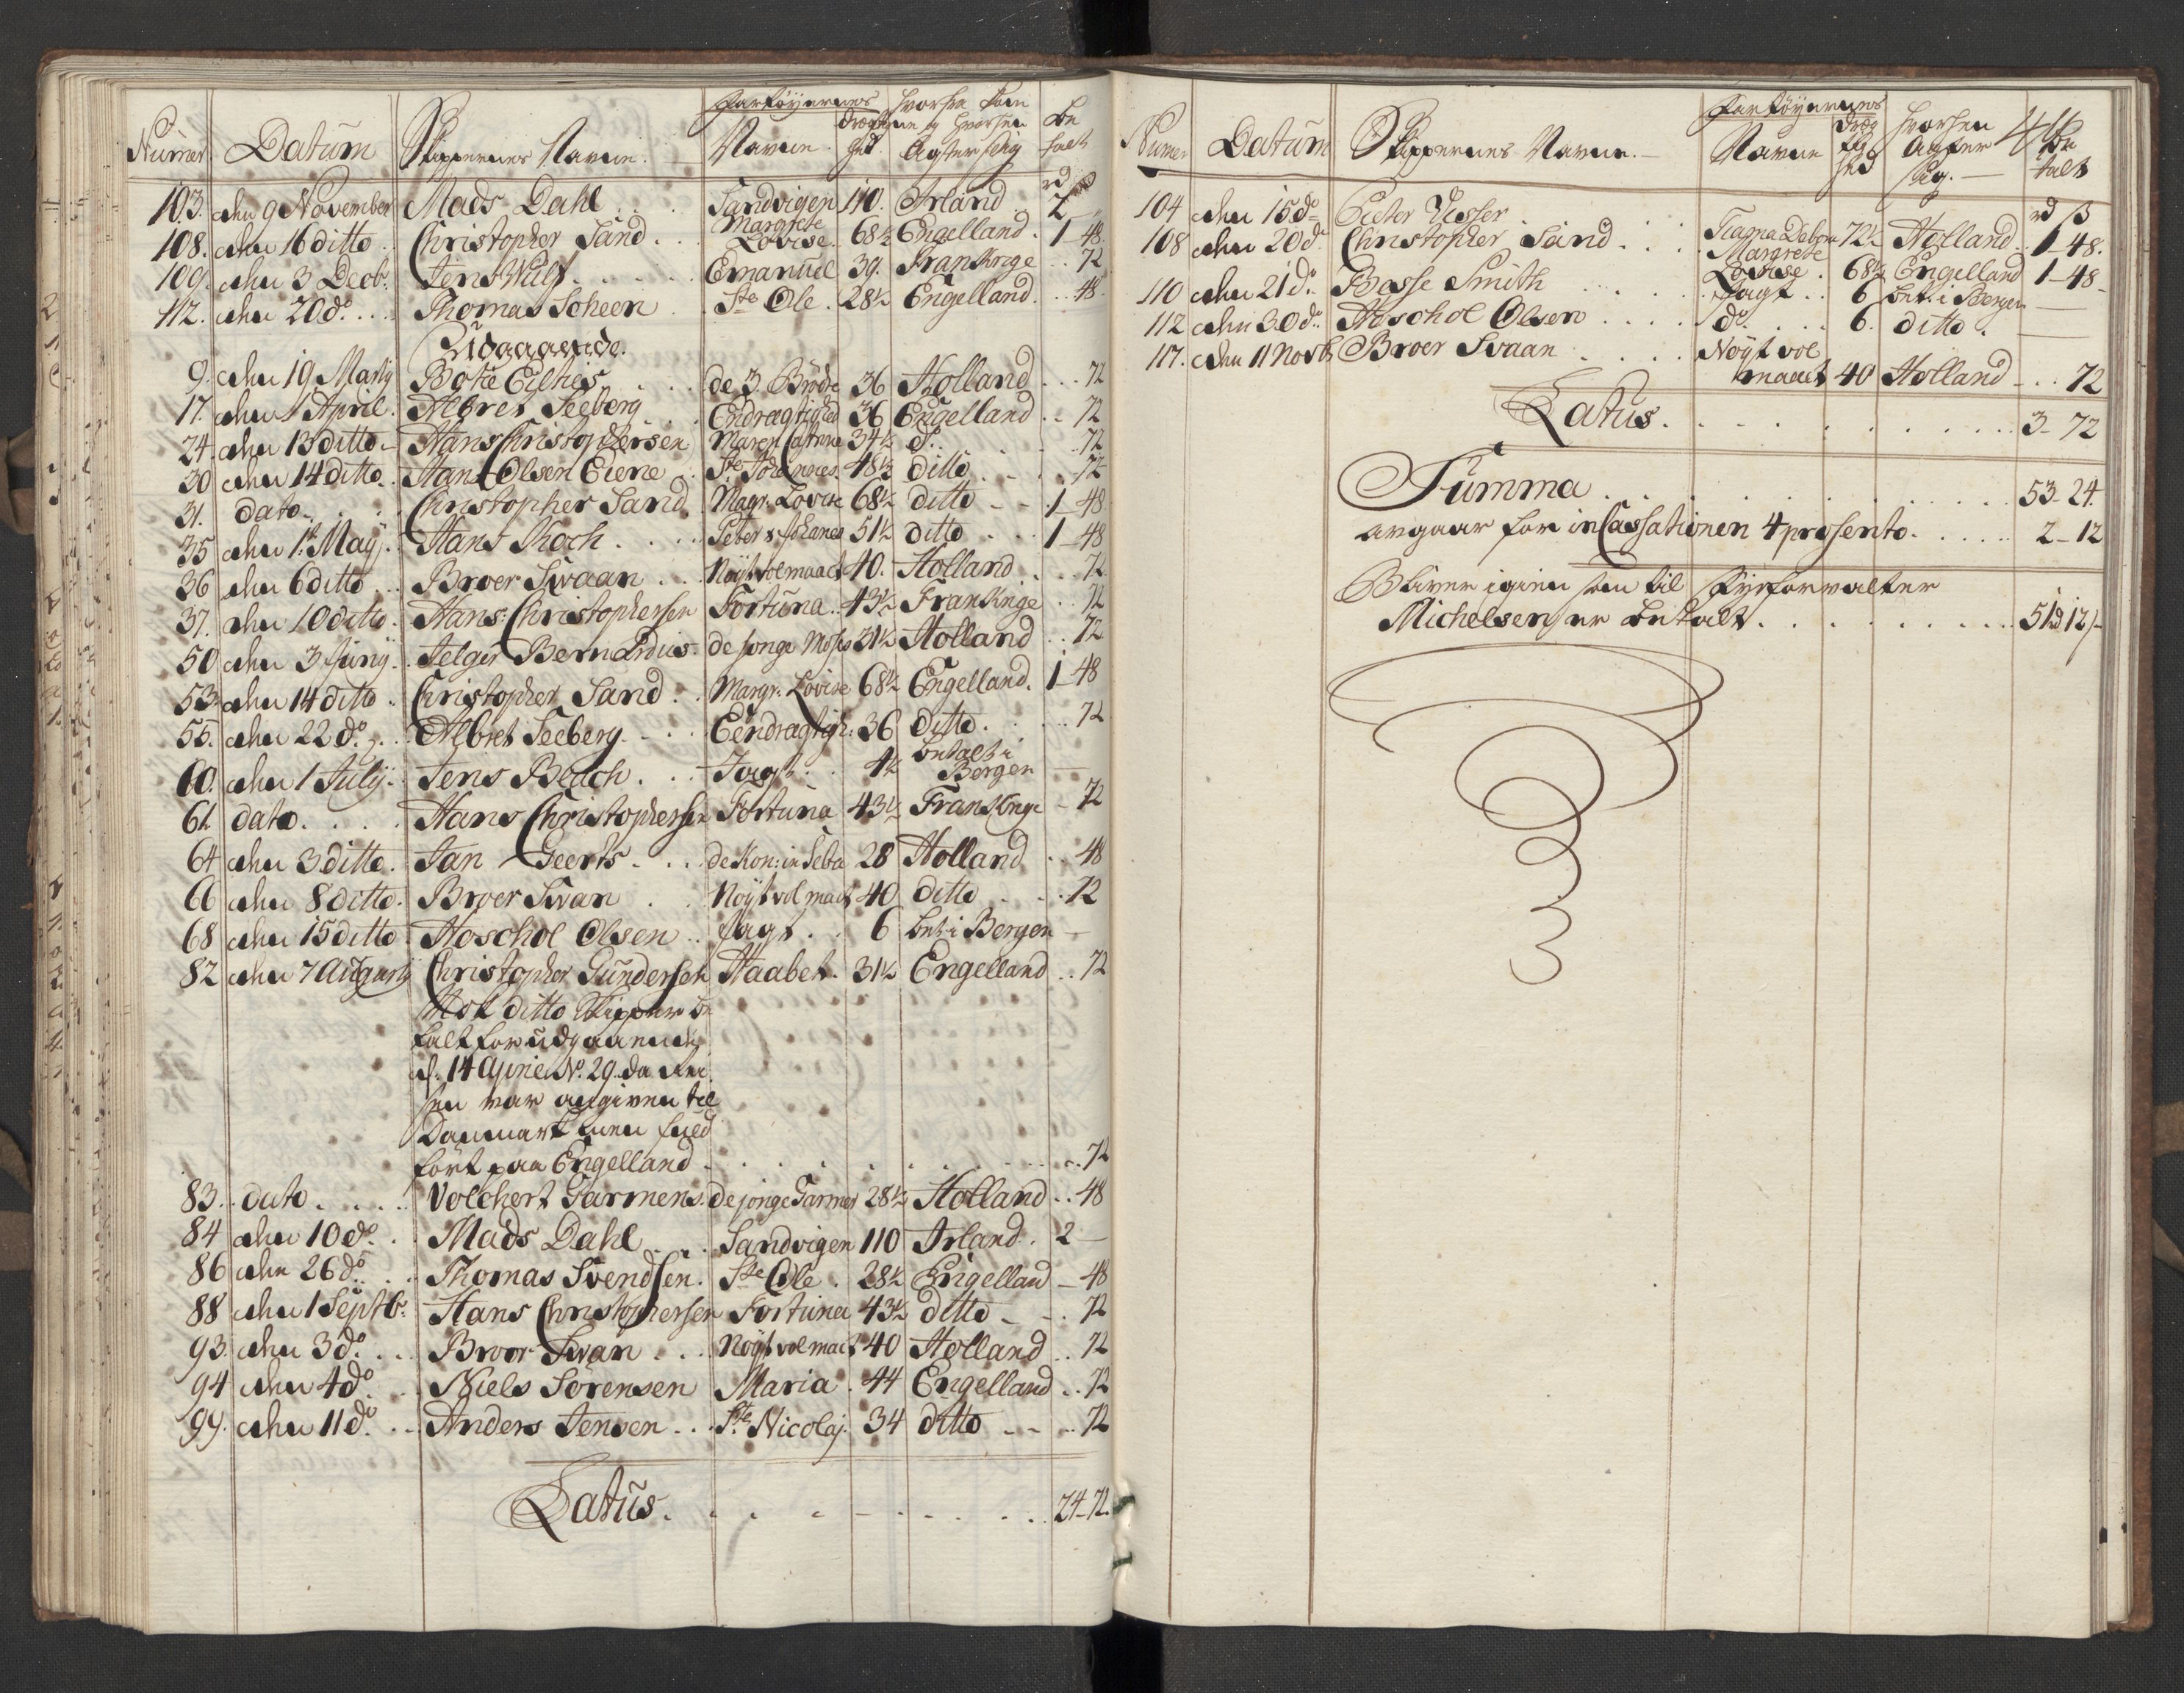 Farföyernes Hvorfra kom
Numer Datum Skippernes Navne. Navne. Drægtig hed og Hvorhen Agter sig Betalt
rd
103. den 9 November Mads Dahl Sandvigen 110. Irland 2
108. den 16 ditto Christopher Sand Margrete Lovise. 68½ Engelland 1 48
109. den 3 Decbr. Jens Wulf Emanuel 39. Frankrige 72
112. den 20 do. Thomas Scheen Ste Ole. 28½ Engelland 48
Udgaaende.
9. den 19 Martj Bote Eilkes de 3 Brødre 36 Holland 72
17. den 1 April. Albret Seeberg Endragtighed 36 Engelland 72
24. den 13 ditto Hans Christophersen Maren Catrine 34½ do. 72
30 den 14 ditto. Hans Olsen Eiene Ste Johannes. 48½ ditto 72
31. dato Christopher Sand Magr. Lovise 68½ ditto 1 48
35 den 1te Maij. Hans Koch Peter & Johanes 51½ ditto 1 48
36 den 6 ditto Broer Svaan Nöyt volmaact 40. Holland 72
37. den 10 ditto. Hans Christophersen Fortuna 43½ Frankrige 72
50 den 3 Junij. Jelger Bernardus. de jonge Moses 31½ Holland 72
53. den 14 ditto Christopher Sand Margr. Lovise 68½ Engelland. 1 48
55. den 22 do. Albret Seeberg Eendragtigh: 36 ditto. 72
60. den 1 Julij. Jens Beach Jagt 4½ betalt i Bergen
61. dato Hans Christophersen Fortuna 43½ Frankrige 72
64 den 3 ditto. Jan Geerts de Kon: in Seba 28 Holland 48
66 den 8 ditto. Broer Svan Nöyt vol maact 40 ditto 72
68 den 15 ditto Hoschol Olsen Jagt 6 bet: i Bergen
82 den 7 Augustj Christopher Gundersen Haabet. 31½ Engelland 72
Nok ditto Skipper be
talt for udgaaende
d. 14 Aprie No. 29. da Rei
sen var angiven til
Danmark men fuld
fört paa Engelland 72
83. dato Volchert Garmens. de jonge Garmen 28½ Holland 48
84 den 10 do. Mads Dahl Sandvigen 110 Irland. 2
86 den 26 do. Thomas Svendsen. Ste Ole. 28½ Engelland 48
88 den 1 Septbr. Hans Christophersen Fortuna 43½ ditto 72
93. den 3 do. Broer Svan Nöyt vol maact 40 Holland 72
94 den 4 do. Niels Sörensen Maria. 44 Engelland 72
99. den 11 do. Anders Jensen Ste. Nicolaj. 34 ditto 72
Latus. 24-72.
Farföyernes
Numer Datum Skippernes Navne. Navne Dræg tig hed Hvorhen Agter sig. Be talt
rd ß
104 den 15 do Pieter Visser Debora 72½ Holland 1 48.
108 den 20 do Christopher Sand Margrete Lovise. 68½ Engelland 1-48
110 den 21 do. Basse Smith Jagt 6 bet. i Bergen
112 den 30 do. Hoschol Olsen do 6. ditto.
117. den 11 Novbr Broer Svaan Nöyt vol maact 40 Holland 72
Latus. 3-72
Summa 53-24.
avgaar for inCassationen 4 prosento. 2-12
Bliver igien som til Fyrforvalter
Michelsen er betalt. 51 rd 12 ß